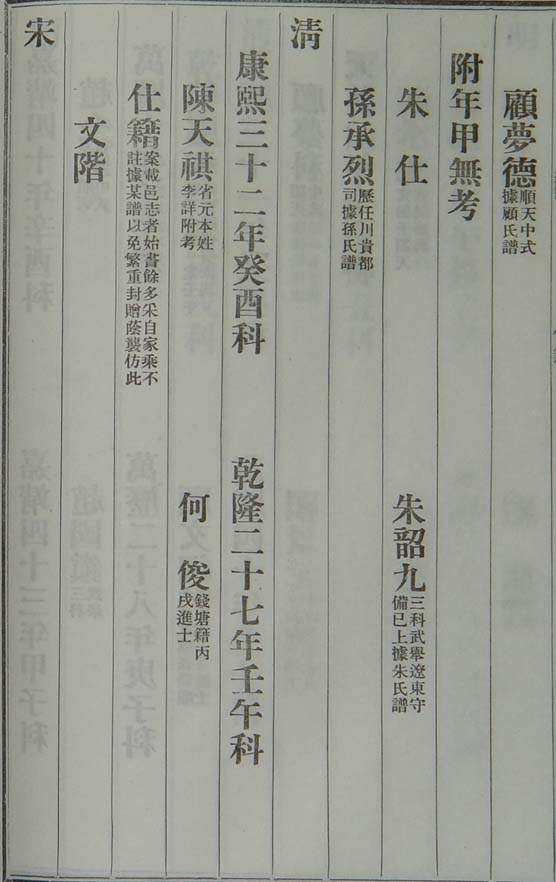 顧夢德順天中式據顧氏譜
附年甲無考
朱仕　朱韶九三科武舉遼東守備已上據朱氏譜
孫承烈歷任川貴都司據孫氏譜
淸
康熙三十二年癸酉科　乾隆二十七年壬午科
陳天祺省元本姓李詳附考　何俊錢塘籍丙戌進士
仕籍案載邑志者始書餘多采自家乘不註據某譜以免繁重封贈蔭襲仿此
文階
宋